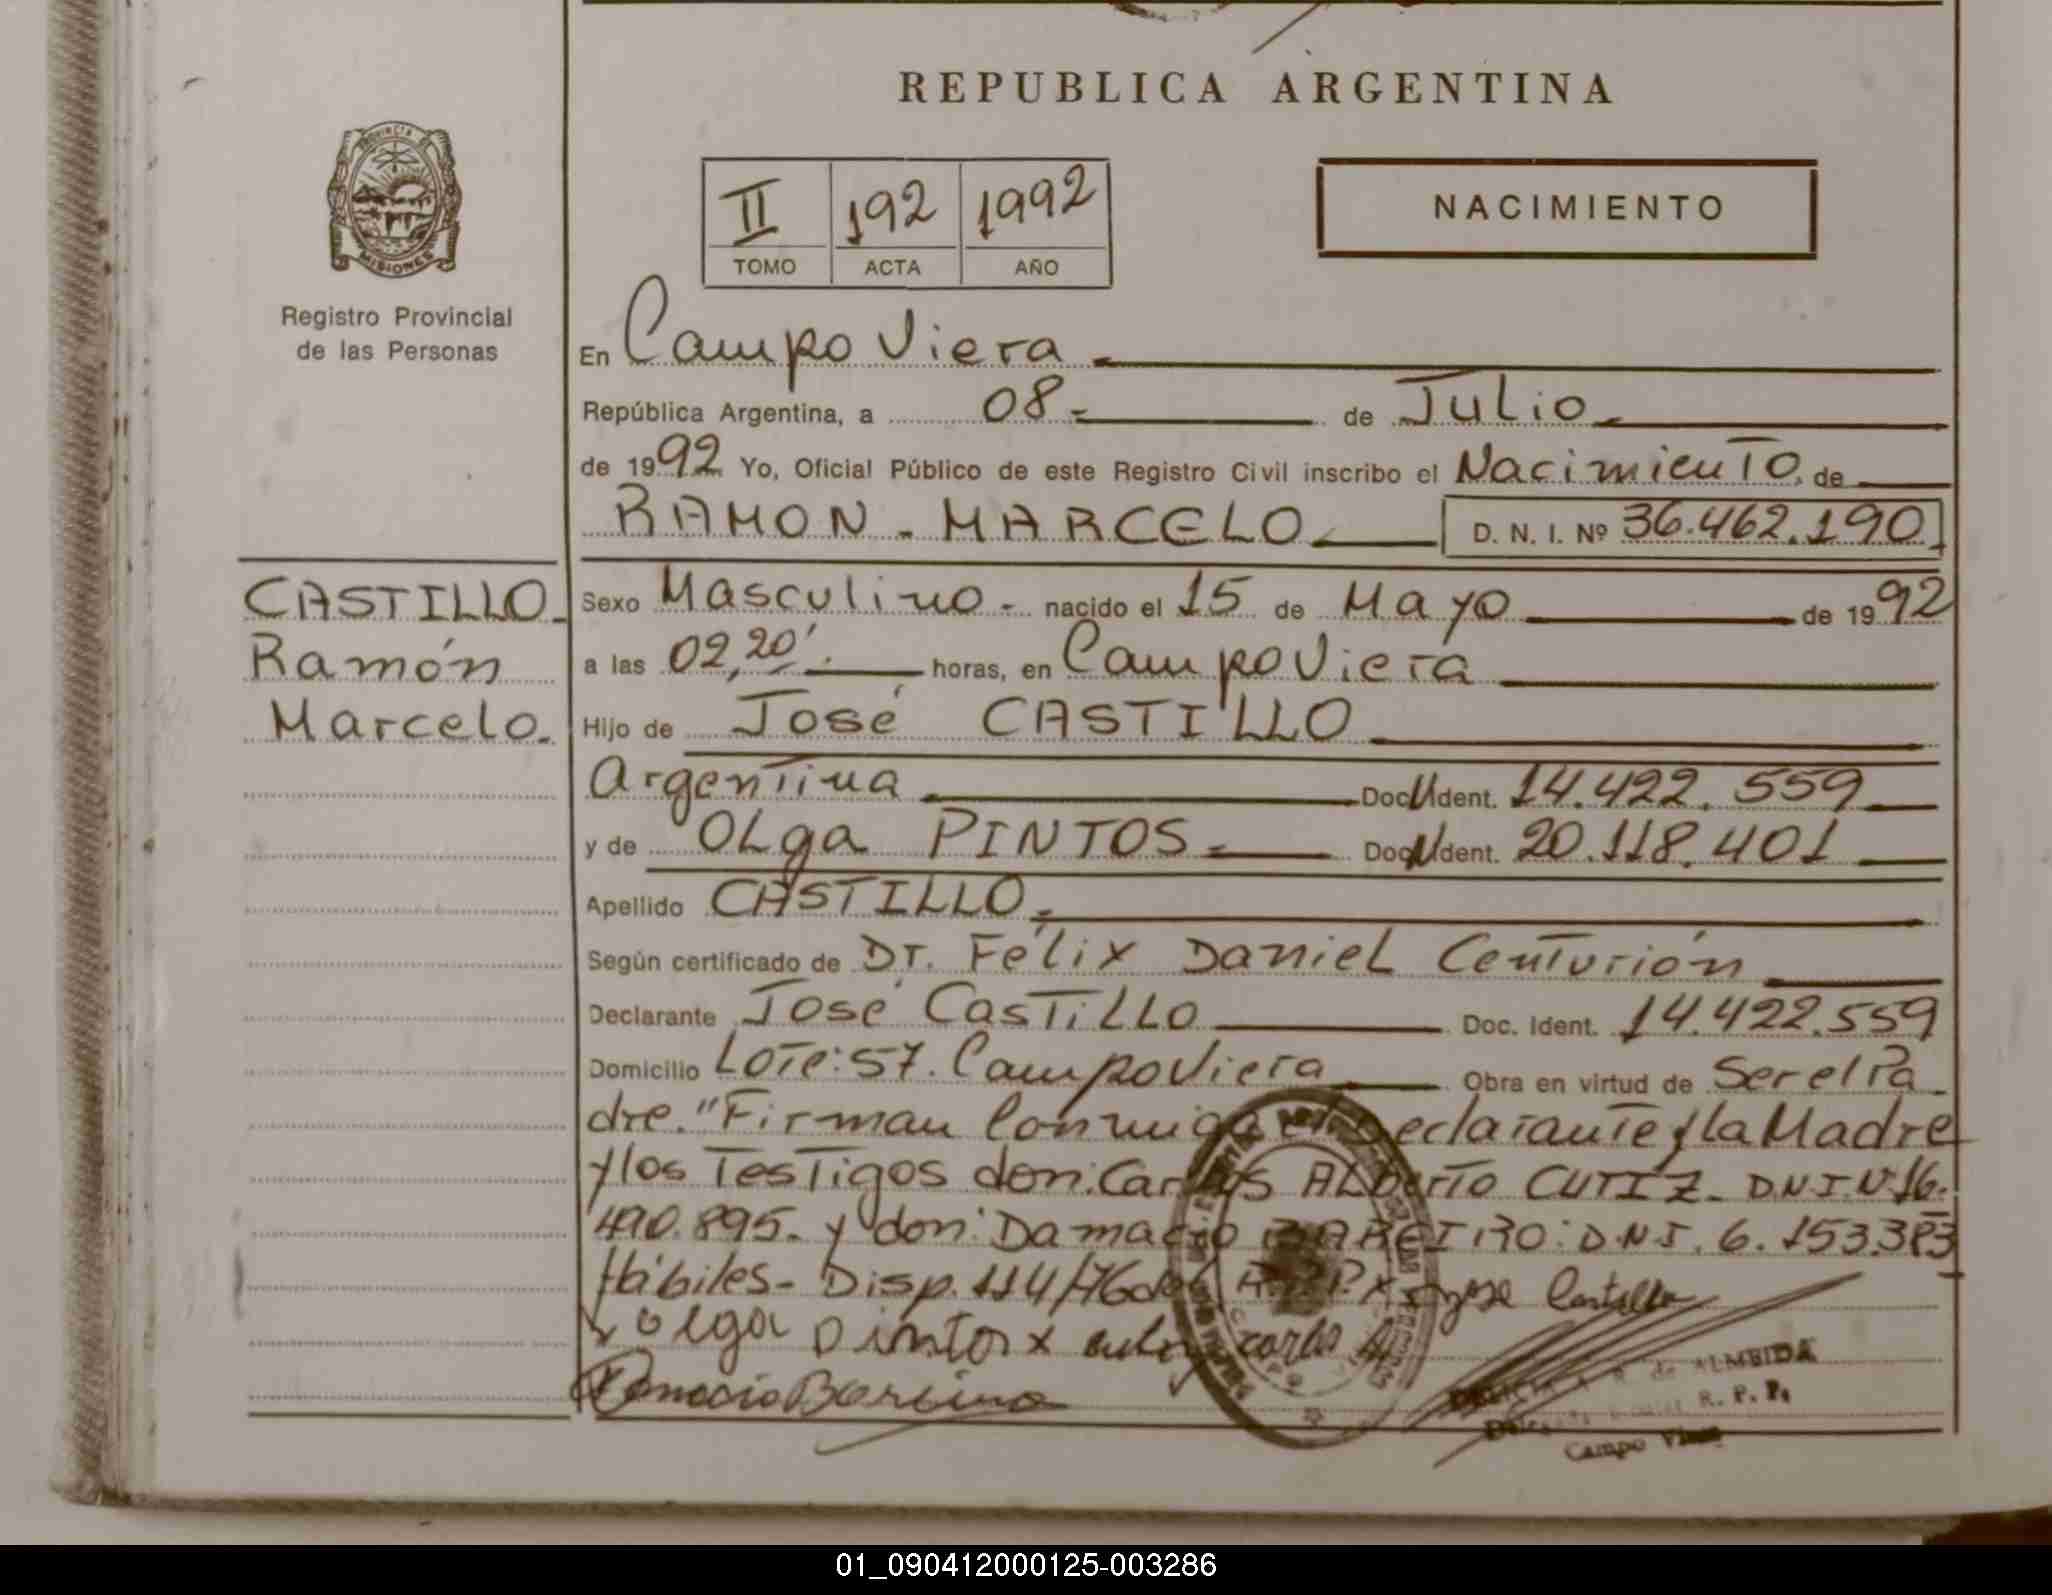 REPUBLICA ARGENTINA
PROVINCIA DE
MISIONES
Registro Provincial
de las Personas
II 192 1992
TOMO ACTA AÑO
NACIMIENTO
En Campo Viera
República Argentina, a 08 de Julio
de 1992 Yo, Oficial Público de este Registro Civil inscribo el Nacimiento, de
RAMON - MARCELO D. N. I. Nº 36.462.190
CASTILLO
Ramón
Marcelo.
Sexo Masculino nacido el 15 de Mayo de 1992
a las 02,20' horas, en Campo Viera
Hijo de José CASTILLO
Argentina Doc. Ident. 14.422.559
y de OLga PINTOS Doc. Ident. 20.118.401
Apellido CASTILLO
Según certificado de Dr. Félix Daniel Centurión
Declarante José Castillo Doc. Ident. 14.422.559
Domicilio Lote: 57. Campo Viera Obra en virtud de Ser el Pa
dre. "Firman Conmigo el Declarante y la Madre
y los Testigos don: Carlos Alberto CUTIZ - D.N.I. Nº 16.
490.895. y don: Damacio BAREIRO: D.N.I. 6.153.383
Hábiles - Disp. 114/76 del R.P.P. x Jose Castillo
x olga Pintos x carlos A
Damacio Bareiro
de ALMEIDA
R. P. P.
Campo Viera
01_090412000125-003286